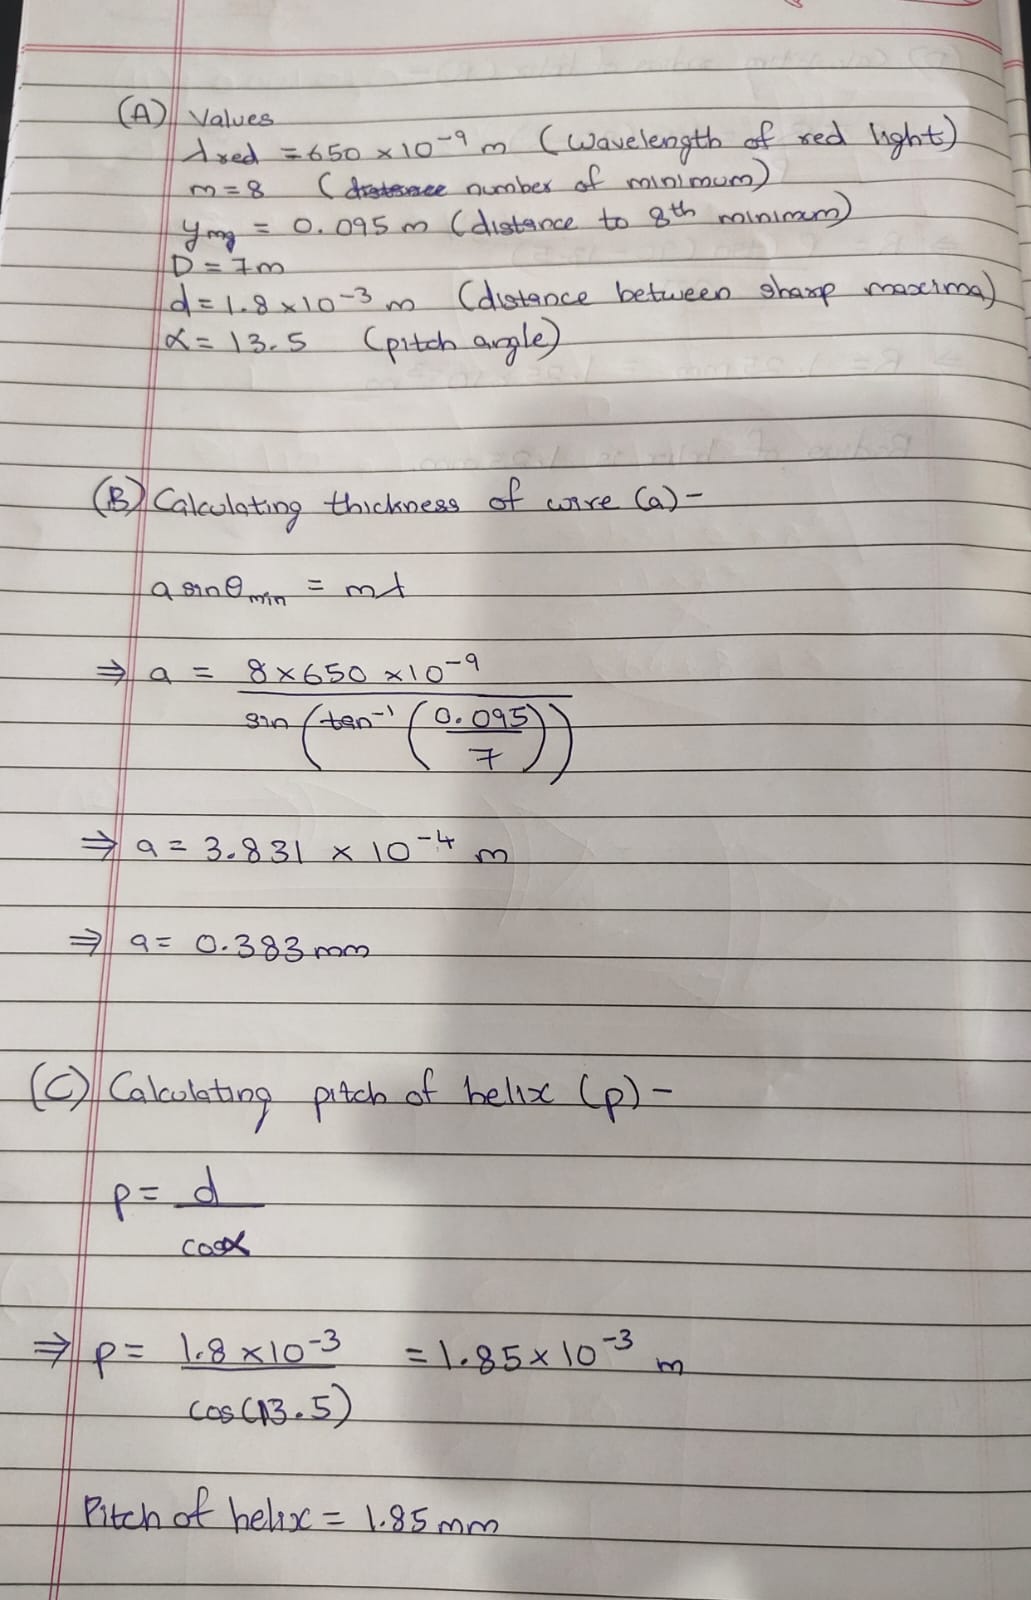 (A) Values
λred = 650 × 10⁻⁹ m (Wavelength of red light)
m = 8 (number of minimum)
= 0.095 m (distance to 8th minimum)
D = 7m
d = 1.8 × 10⁻³ m (distance between sharp maxima)
α = 13.5 (pitch angle)
(B) Calculating thickness of wire (a) -
a sinθmin = mλ
⇒ a = 8 × 650 × 10⁻⁹
sin (tan⁻¹ (0.095
7))
⇒ a = 3.831 × 10⁻⁴ m
⇒ a = 0.383 mm
(C) Calculating pitch of helix (p) -
p = d
cosα
⇒ p = 1.8 × 10⁻³ = 1.85 × 10⁻³ m
cos(13.5)
Pitch of helix = 1.85 mm